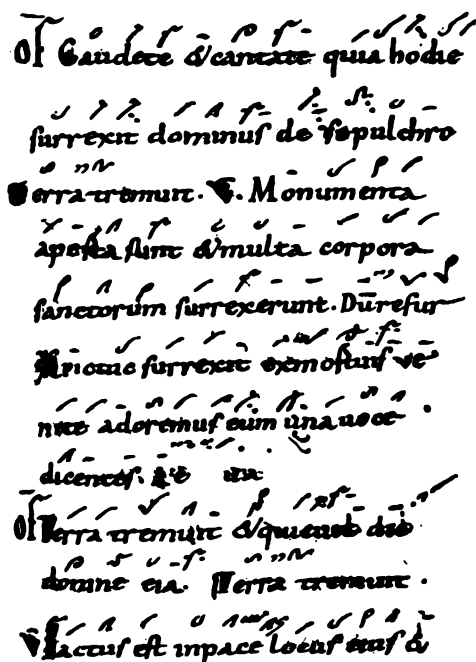 Of Gaudete & cantate quia hodie
surrexit dominus de sepulchro
Terra tremuit. V. Monumenta
aperta sunt & multa corpora
sanctorum surrexerunt. Dū resur
surrexit ex mortuis ve
nite adoremus eum una voce
dicentes.
Of Terra tremuit & quievit
domine eia. Terra tremuit.
V Factus est in pace locus eius &